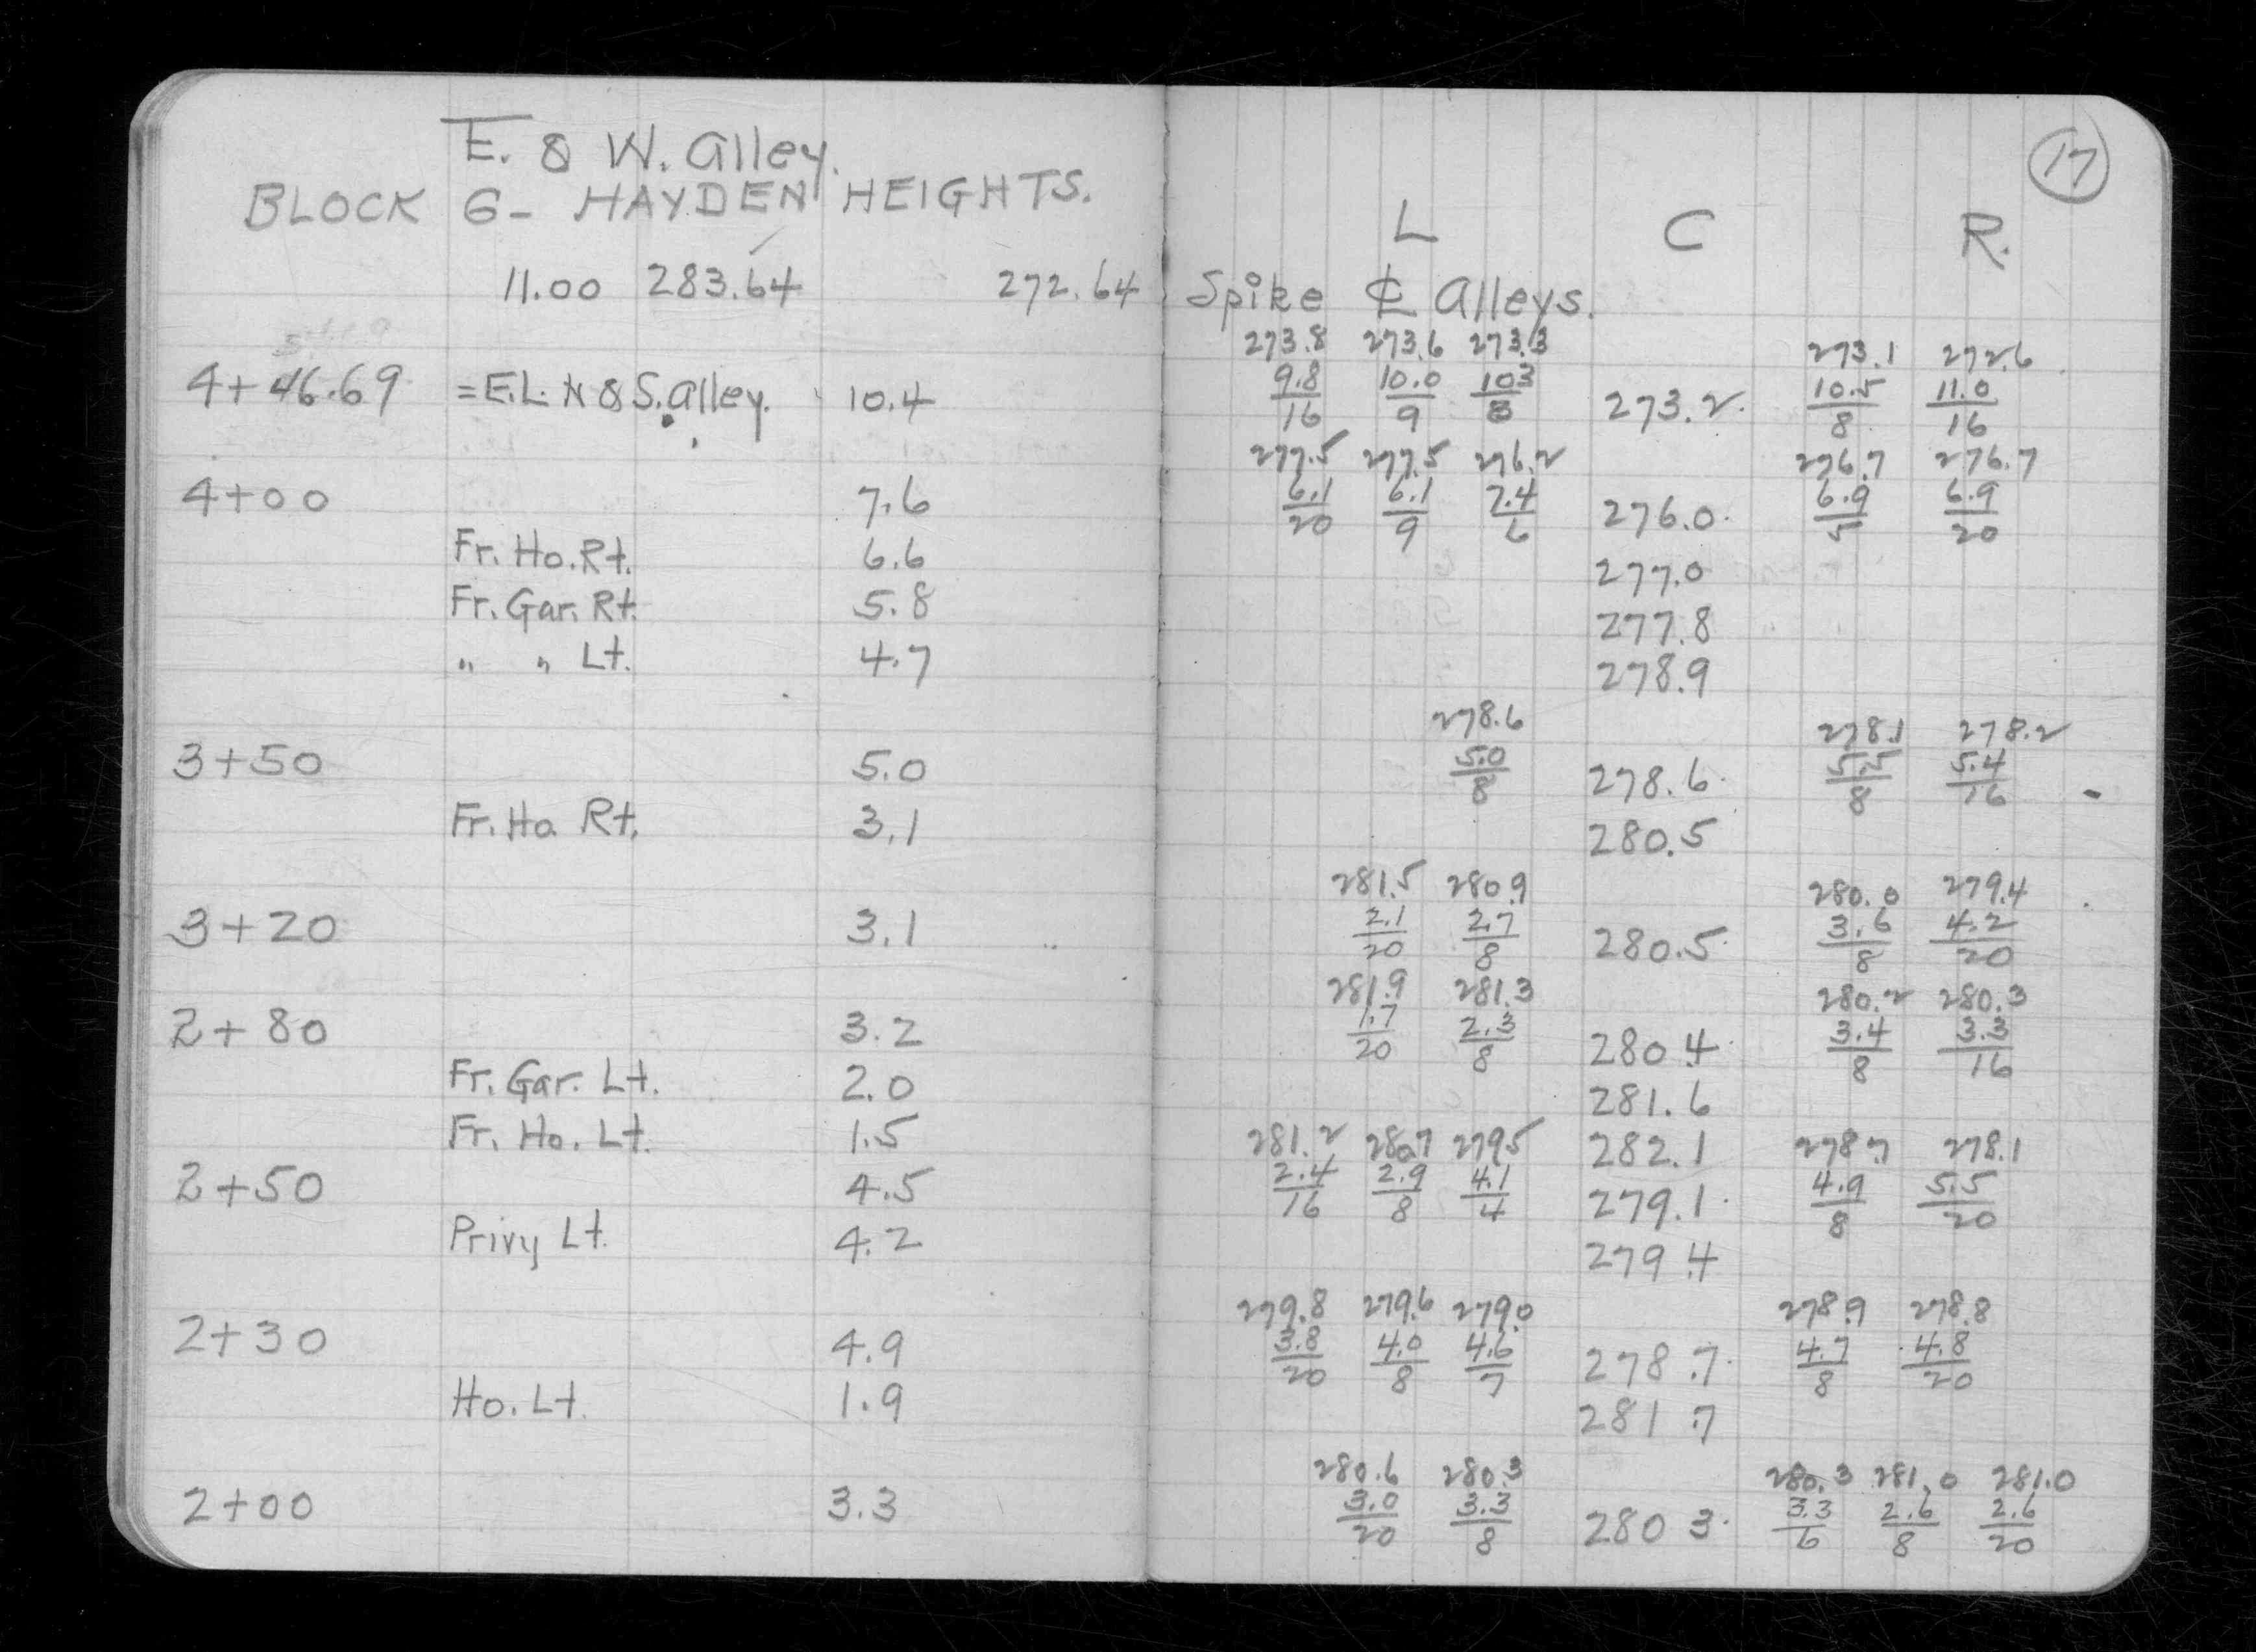 E. & W. Alley.
BLOCK 6- HAYDEN HEIGHTS.
11.00 283.64 272.64
4+46.69 =E.L. N & S. Alley. 10.4
4+00 7.6
Fr. Ho. Rt. 6.6
Fr. Gar. Rt. 5.8
" " Lt. 4.7
3+50 5.0
Fr. Ho. Rt. 3.1
3+20 3.1
2+80 3.2
Fr. Gar. Lt. 2.0
Fr. Ho. Lt. 1.5
2+50 4.5
Privy Lt. 4.2
2+30 4.9
Ho. Lt. 1.9
2+00 3.3
17
L C R.
Spike ℄ Alleys.
273.8 273.6 273.3 273.1 272.6
9.8 10.0 10.3 273.2 10.5 11.0
16 9 8 8 16
277.5 277.5 276.2 276.7 276.7
6.1 6.1 7.4 276.0 6.9 6.9
20 9 6 5 20
277.0
277.8
278.9
278.6 278.1 278.2
5.0 278.6 5.5 5.4
8 8 16
280.5
281.5 280.9 280.0 279.4
2.1 2.7 280.5 3.6 4.2
20 8 8 20
281.9 281.3 280.2 280.3
1.7 2.3 280.4 3.4 3.3
20 8 8 16
281.6
281.2 280.7 279.5 282.1 278.7 278.1
2.4 2.9 4.1 279.1 4.9 5.5
16 8 4 8 20
279.4
279.8 279.6 279.0 278.9 278.8
3.8 4.0 4.6 278.7 4.7 4.8
20 8 7 8 20
281.7
280.6 280.3 280.3 281.0 281.0
3.0 3.3 280.3 3.3 2.6 2.6
20 8 6 8 20